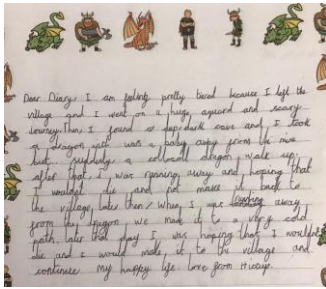 Dear Diary, I am feeling pretty tired because I left the
village and I went on a huge, and scary
journey. Then, I found a dark cave and I took
a dragon was a baby away from the
but suddenly a colossal dragon walk up
after that, I was running away and hoping that
I wouldn't die and make it back to
the village later then / when I was running away
from the dragon we made it to a very cold
path, later that day I was hoping that I wouldnt
die and I would make it to the village and
continue my happy life love from Hiccup.